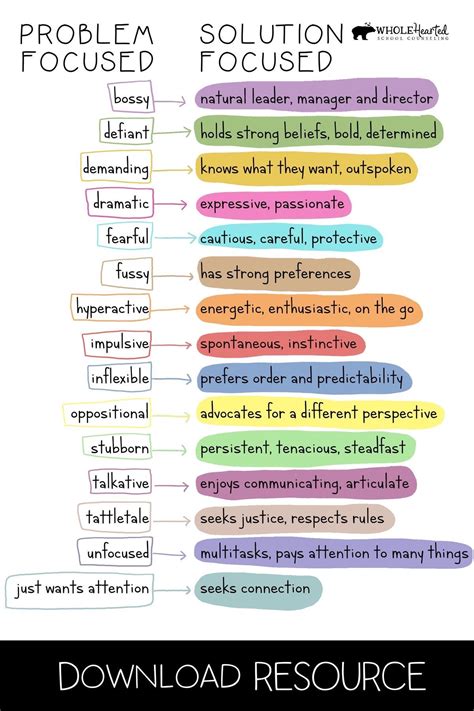 PROBLEM FOCUSED
SOLUTION FOCUSED
WHOLEHearted
SCHOOL COUNSELING
bossy natural leader, manager and director
defiant holds strong beliefs, bold, determined
demanding knows what they want, outspoken
dramatic expressive, passionate
fearful cautious, careful, protective
fussy has strong preferences
hyperactive energetic, enthusiastic, on the go
impulsive spontaneous, instinctive
inflexible prefers order and predictability
oppositional advocates for a different perspective
stubborn persistent, tenacious, steadfast
talkative enjoys communicating, articulate
tattletale seeks justice, respects rules
unfocused multitasks, pays attention to many things
just wants attention seeks connection
DOWNLOAD RESOURCE